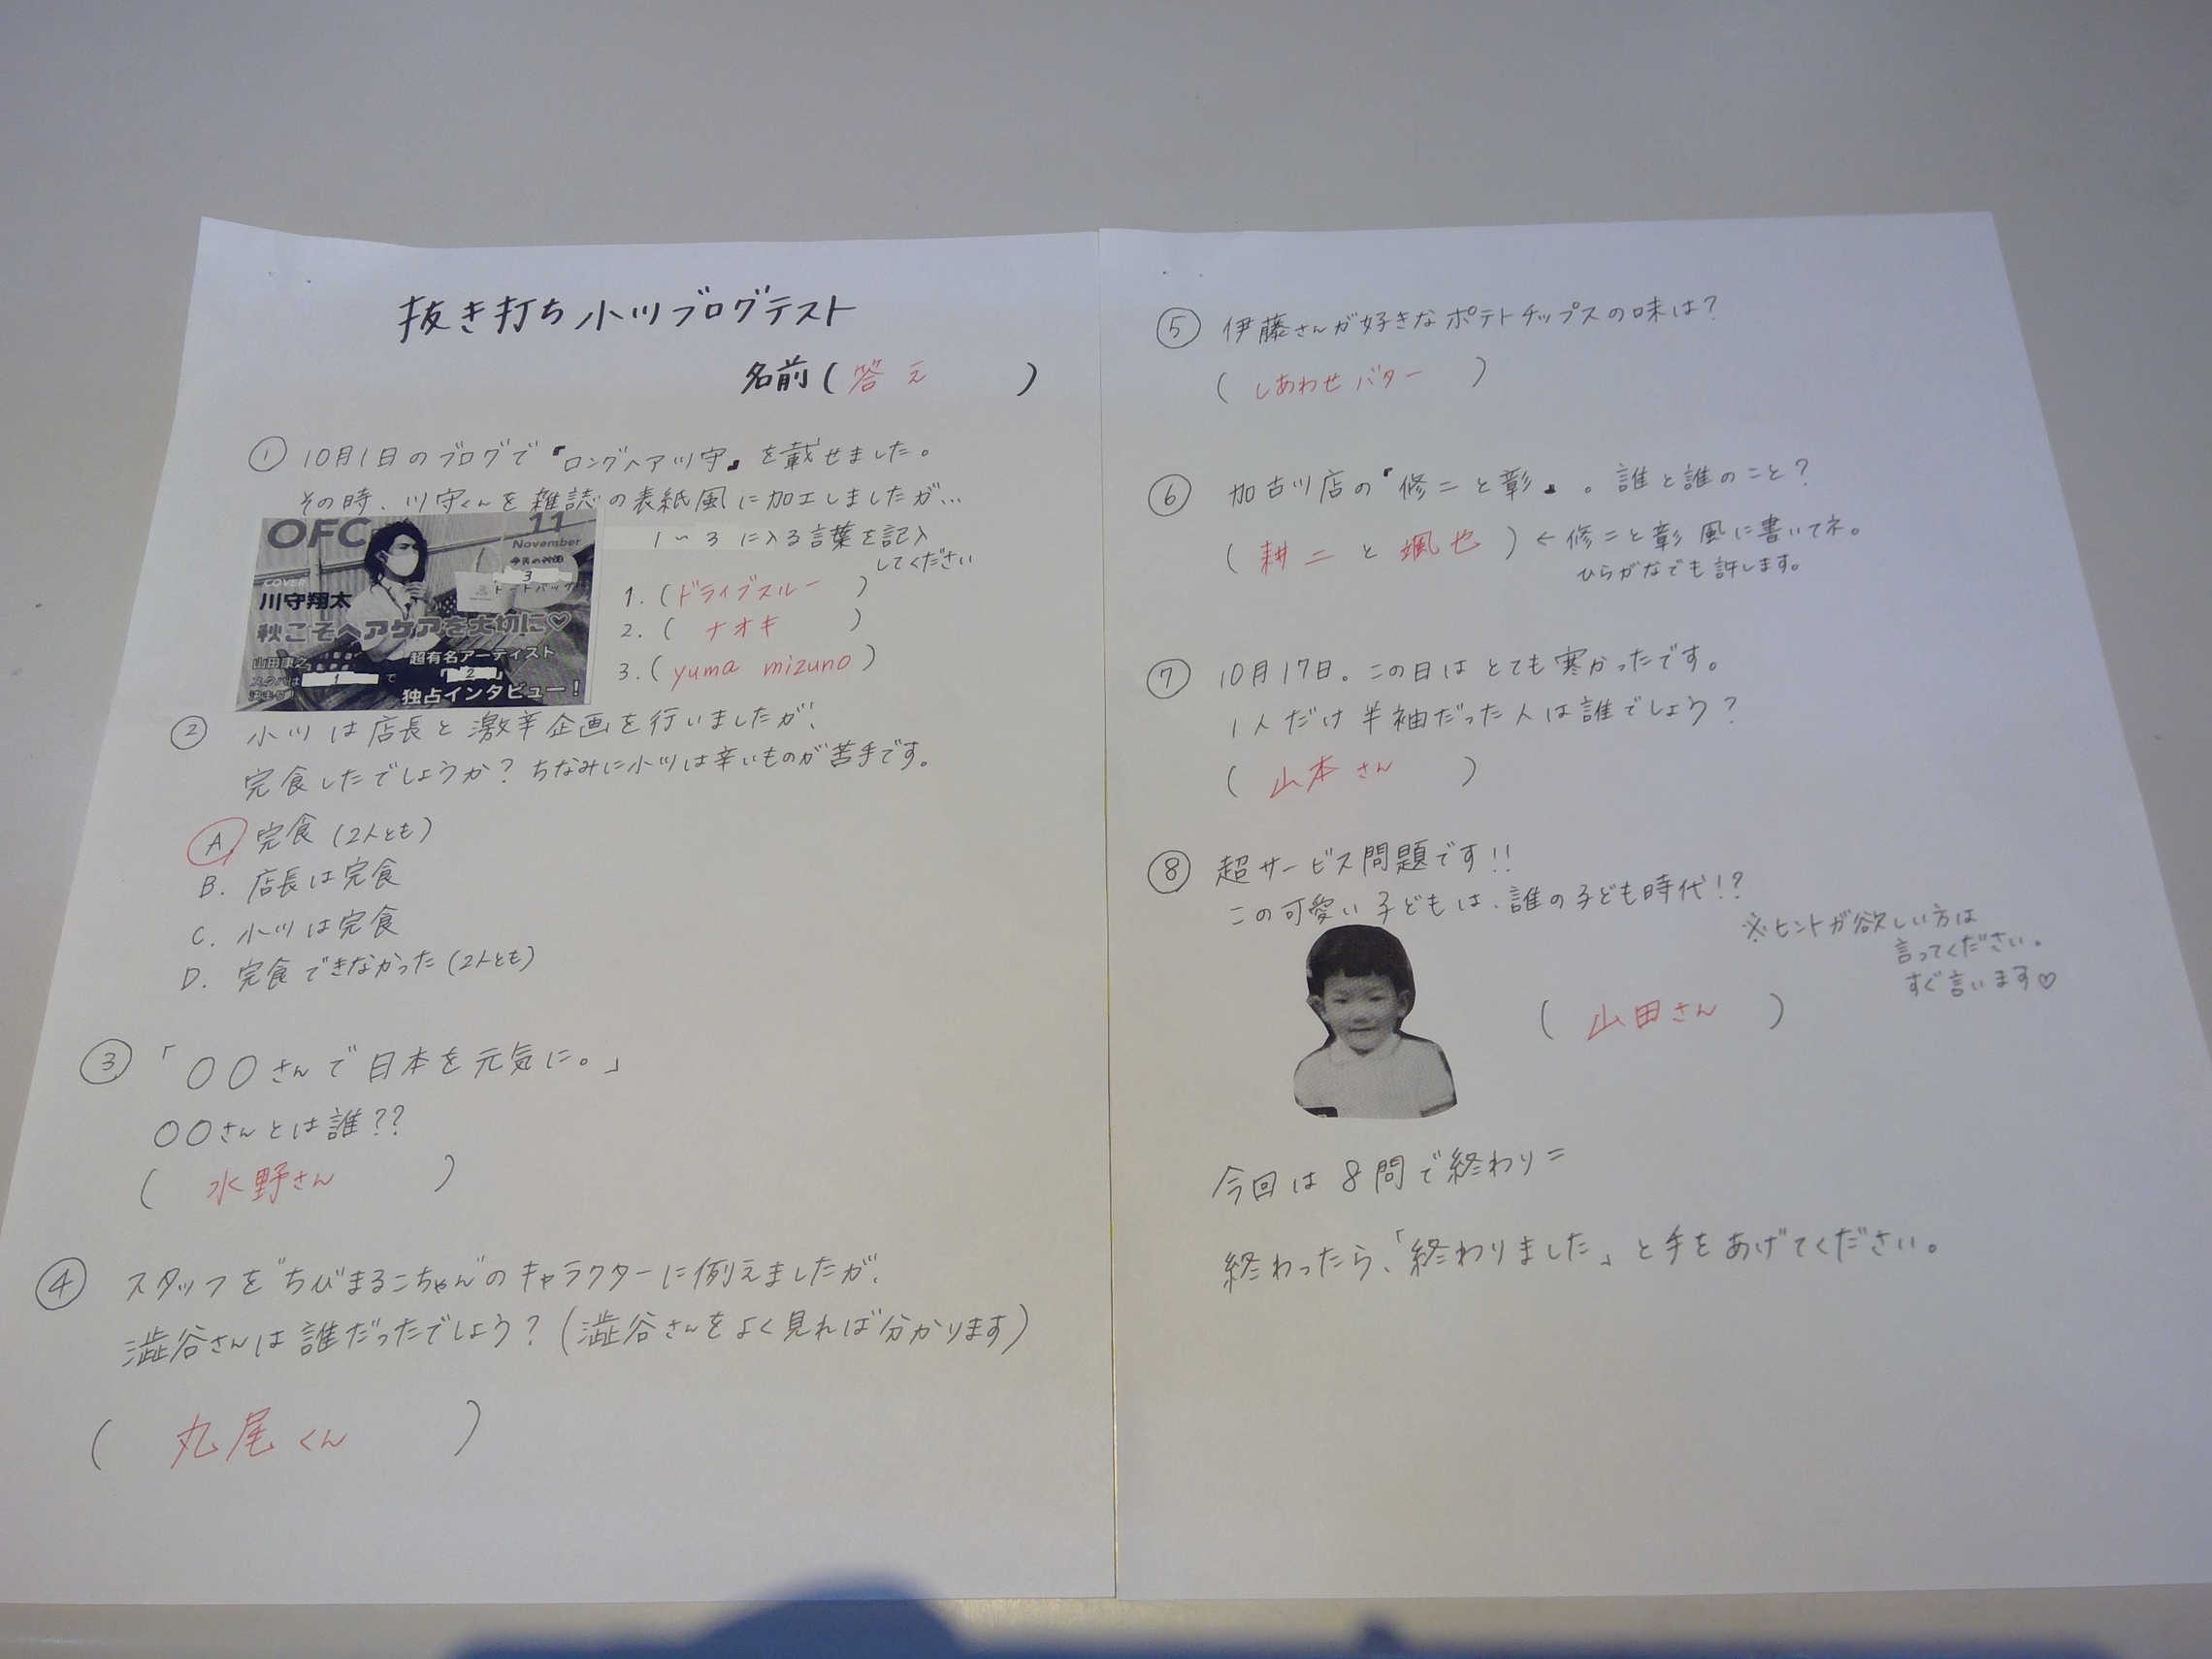 抜き打ち小ツブログテスト
名前(答え)
① 10月1日のブログで『ロングヘア川守』を載せました。
その時、川守くんを雑誌の表紙風に加工しましたが…
OFC
11
November
3
トートバッグ
COVER
川守翔太
秋こそヘアケアを大切に♡
山田康之
スタバは
1
で
超有名アーティスト
2
独占インタビュー!
1〜3に入る言葉を記入
してください
1.(ドライブスルー)
2.(ナオキ)
3.(yuma mizuno)
② 小ツは店長と激辛企画を行いましたが、
完食したでしょうか?ちなみに小ツは辛いものが苦手です。
A 完食(2人とも)
B. 店長は完食
C. 小ツは完食
D. 完食できなかった(2人とも)
③ 「〇〇さんで日本を元気に。」
〇〇さんとは誰??
(水野さん)
④ スタッフを"ちびまるこちゃん"のキャラクターに例えましたが、
澁谷さんは誰だったでしょう?(澁谷さんをよく見れば分かります)
(丸尾くん)
⑤ 伊藤さんが好きなポテトチップスの味は?
(しあわせバター)
⑥ 加古川店の『修二と彰』。誰と誰のこと?
(耕二と颯也)←修二と彰風に書いてネ。
ひらがなでも許します。
⑦ 10月17日。この日はとても寒かったです。
1人だけ半袖だった人は誰でしょう?
(山本さん)
⑧ 超サービス問題です!!
この可愛い子どもは、誰の子ども時代!?
※ヒントが欲しい方は
言ってください。
すぐ言います♡
(山田さん)
今回は8問で終わり=
終わったら、「終わりました」と手をあげてください。